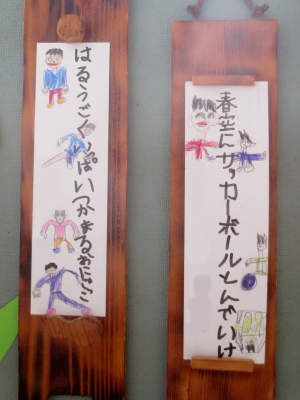 春空にサッカーボールとんでいけ
はるうごくいっぱいつかまるおにごっこ